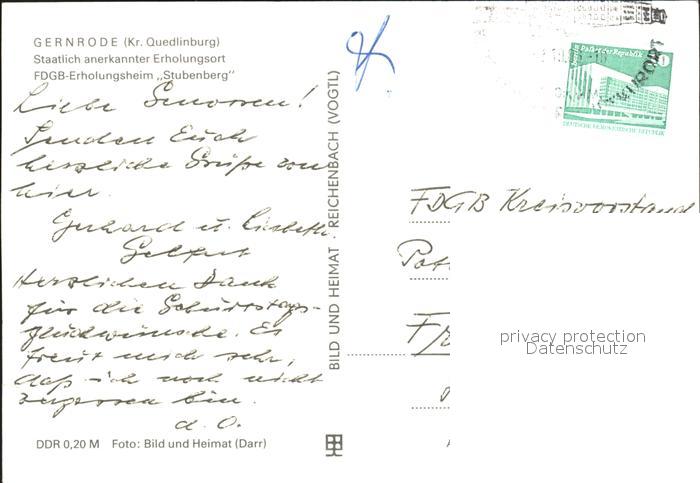 GERNRODE (Kr. Quedlinburg)
Staatlich anerkannter Erholungsort
FDGB-Erholungsheim „Stubenberg"
Liebe Senioren!
Senden Euch
herzliche Grüße von
hier.
Gerhard u. Lisbeth
Herzlichen Dank
für die Geburtstags-
glückwünsche. Es
freut mich sehr,
daß ich noch nicht
vergessen bin.
d. O.
DDR 0,20 M Foto: Bild und Heimat (Darr)
BILD UND HEIMAT · REICHENBACH (VOGTL)
Palast der Republik
DEUTSCHE DEMOKRATISCHE REPUBLIK
FDGB Kreisvorstand
privacy protection
Datenschutz